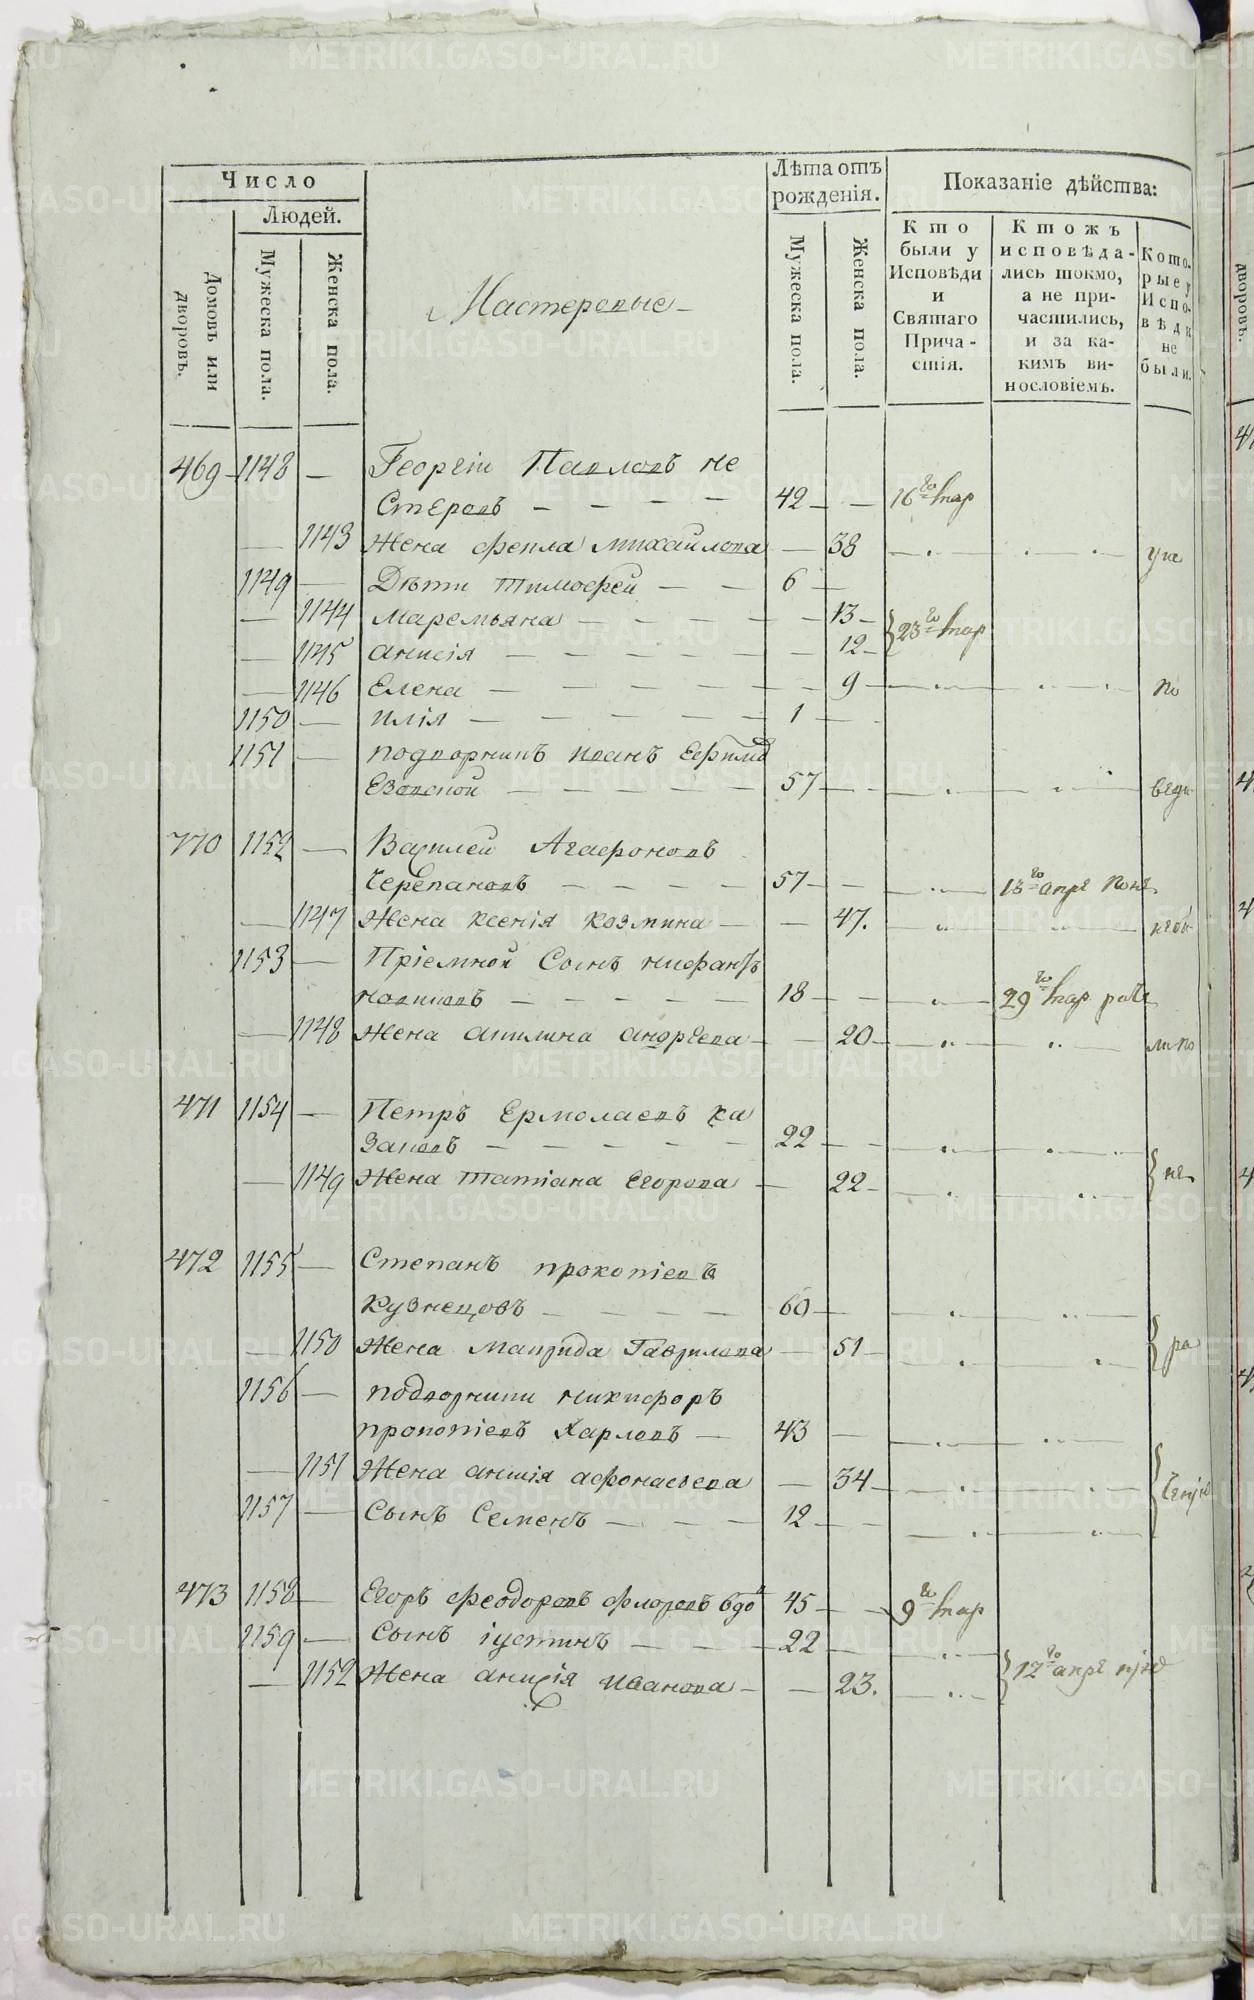 Число
Людей.
Домовъ или дворовъ.
Мужеска пола.
Женска пола.
Мастеровые
Лѣта отъ рожденія.
Мужеска пола.
Женска пола.
Показаніе дѣйства:
Кто были у Исповѣди и Святаго Причастія.
Кто жъ исповѣдались токмо, а не причастились, и за каким винословіемъ.
Которые у Исповѣди не были.
469 1148 — Георгій Павловъ не
стеровъ — — — — 42 — — 16го мар
— 1143 Жена фекла михайлова — 38
1149 — Дѣти тимофей — — 6 —
— 1144 Маремьяна — — — — 13 —
23го мар
— 1145 анисія — — — — — 12 —
— 1146 Елена — — — — — 9 — по
1150 — илія — — — — — 1 —
1151 — подворникъ иванъ Ефимов
— — — — — 57 — —
770 1152 — Василей Агафоновъ
Черепановъ — — — — 57 — — 18го апре
— 1147 Жена ксенія козмина — — 47.
1153 — Пріемной Сынъ нифантъ
новиковъ — — — — — 18 — — 29го мар
— 1148 Жена акилина андреева — — 20 —
471 1154 — Петръ Ермолаевъ ка
заковъ — — — — — 22 — —
— 1149 Жена татіана егорова — 22 — не
472 1155 — Степанъ прокопіевъ
кузнецовъ — — — — 60 —
— 1150 Жена маврида Гаврилова — 51 — ра
1156 — подворники никифоръ
прокопіевъ Харловъ — 43 —
— 1151 Жена анисія афонасьева — 34 —
1157 — Сынъ Семенъ — — — 12 — —
473 1158 — Егоръ феодоровъ флоровъ вдо 45 — — 9го мар
1159 — Сынъ іустинъ — — — 22 —
— 1152 Жена анисія иванова — — 23.
17го апре
METRIKI.GASO-URAL.RU